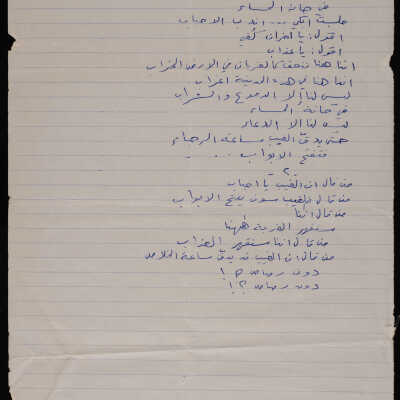 في حانة المساء
جلست أبكي ... أندب الأحباب
أقول: يا أحزان كفي
أقول: يا عذاب
إننا هنا نزحف كالغربان في الأرض الخراب
إننا هنا في هذه المدينة أغراب
ليس لنا إلا الدموع والشراب
في حانة المساء
ليس لنا إلا الدعاء
حتى يدق الغيب ساعة الرجاء
فتفتح الأبواب ....
٢
من قال إن الغيب يا أحباب
من قال الغيب سوف يفتح الأبواب
من قال إننا
سنقهر الغربة ههنا
من قال إننا سنقهر العذاب
من قال إن الغيب قد يدق ساعة الخلاص
دون رصاص ؟!
دون رصاص ؟!!